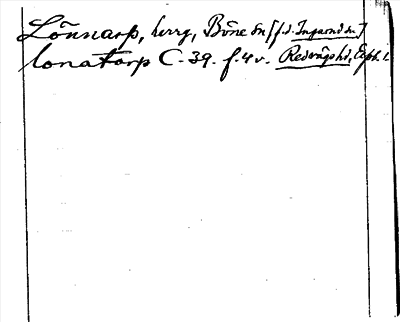 Lönnarp, herrg, Böne sn [f.d. Ingared sn.]
lonatorp C. 39. f. 4 v. Redvägs hd, Älfsb. l.